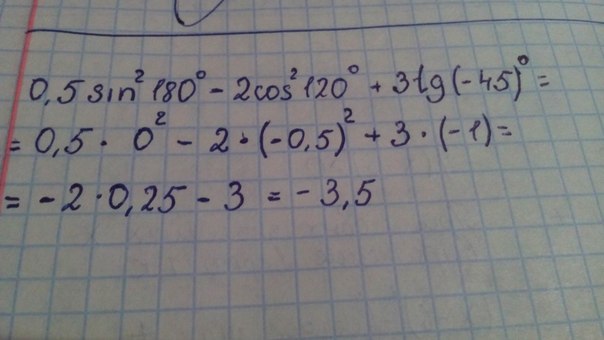 0,5 sin² 180° - 2cos² 120° + 3tg (-45)° =
= 0,5 · 0² - 2 · (-0,5)² + 3 · (-1) =
= - 2 · 0,25 - 3 = - 3,5